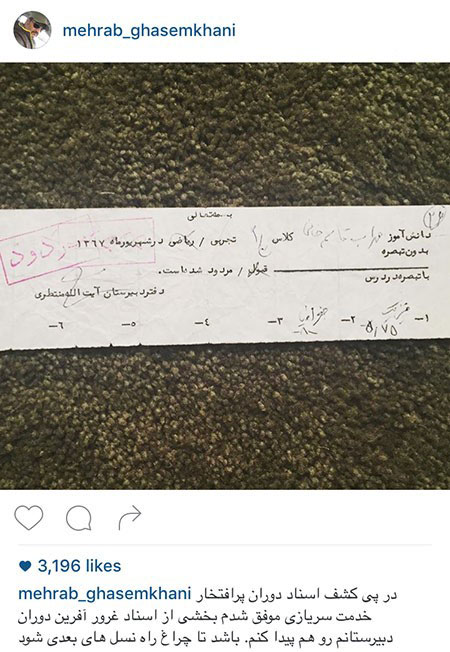 mehrab_ghasemkhani
بسمه‌تعالی
دانش‌آموز مهراب قاسم خانی کلاس تجربی / ریاضی در شهریور ماه ۱۳۶۷
مردود
بدون تبصره
با تبصره در درس قبول / مردود شده‌است.
دفتر دبیرستان آیت الله منتظری
۱- فیزیک ۲- جغرافیا ۳- ۴- ۵- ۶-
۵/۷۵ ۸
3,196 likes
mehrab_ghasemkhani در پی کشف اسناد دوران پرافتخار
خدمت سربازی موفق شدم بخشی از اسناد غرور آفرین دوران
دبیرستانم رو هم پیدا کنم. باشد تا چراغ راه نسل های بعدی شود